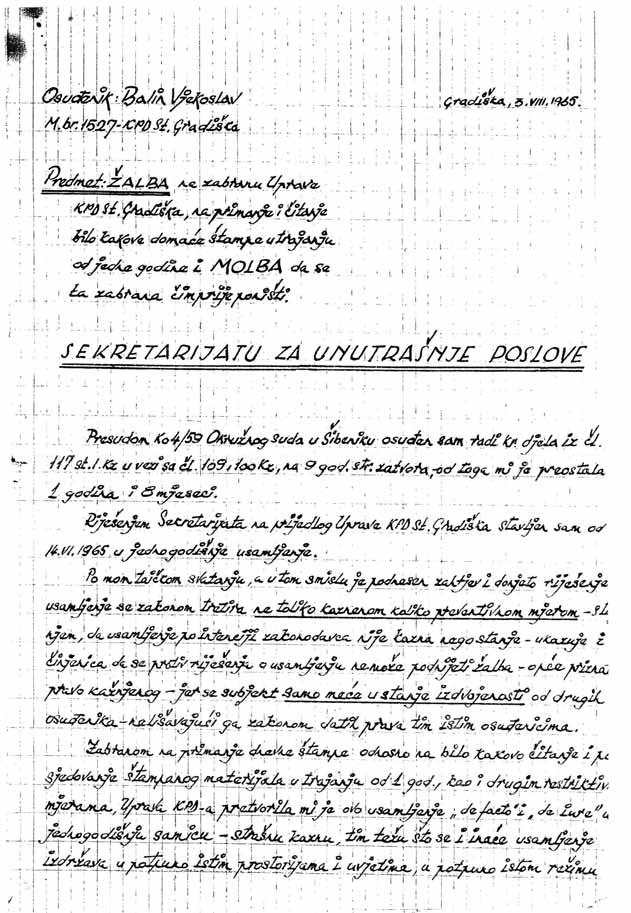 Osuđenik: Balin Vjekoslav
Gradiška, 3.VIII.1965.
M.br. 1527-KPD St. Gradiška
Predmet: ŽALBA na zabranu Uprave
KPD St. Gradiška, na primanje i čitanje
bilo kakove domaće štampe u trajanju
od jedne godine i MOLBA da se
ta zabrana čim prije poništi.
SEKRETARIJATU ZA UNUTRAŠNJE POSLOVE
Presudom Ko 4/59 Okružnog suda u Šibeniku osuđen sam radi kr. djela iz čl.
117 st. 1. Kz u vezi sa čl. 109, 100 Kz, na 9 god. str. zatvora, od toga mi je preostala
1 godina i 8 mjeseci.
Riješenjem Secretarijata na prijedlog Uprave KPD St. Gradiška stavljen sam od
14.VI.1965 u jednogodišnje usamljenje.
Po mom laičkom svatanju, a u tom smislu je podnesen zahtjev i donjeto riješenje
usamljenje se zakonom tretira ne toliko kaznenom koliko preventivnom mjerom -
njem, da usamljenje po intenciji zakonodavca nije kazna nego stanje - ukazuje i
činjenica da se protiv riješenju o usamljenju nemože podnijeti žalba - opće prizna
pravo kažnjenog - jer se subjekt samo meće u stanje izdvojenosti od drugih
osuđenika - nelišavajući ga zakonom datih prava tim istim osuđenicima.
Zabranom na primanje dnevne štampe odnosno na bilo kakovo čitanje i po
sjedovanje štampanog materijala u trajanju od 1 god., kao i drugim restriktiv
mjerama, Uprava KPD-a pretvorila mi je ovo usamljenje „de facto" i „de iure" u
jednogodišnju samicu - strašnu kaznu, tim težu što se i inače usamljenje
izdržava u potpuno istim prostorijama i uvjetima, u potpuno istom režimu